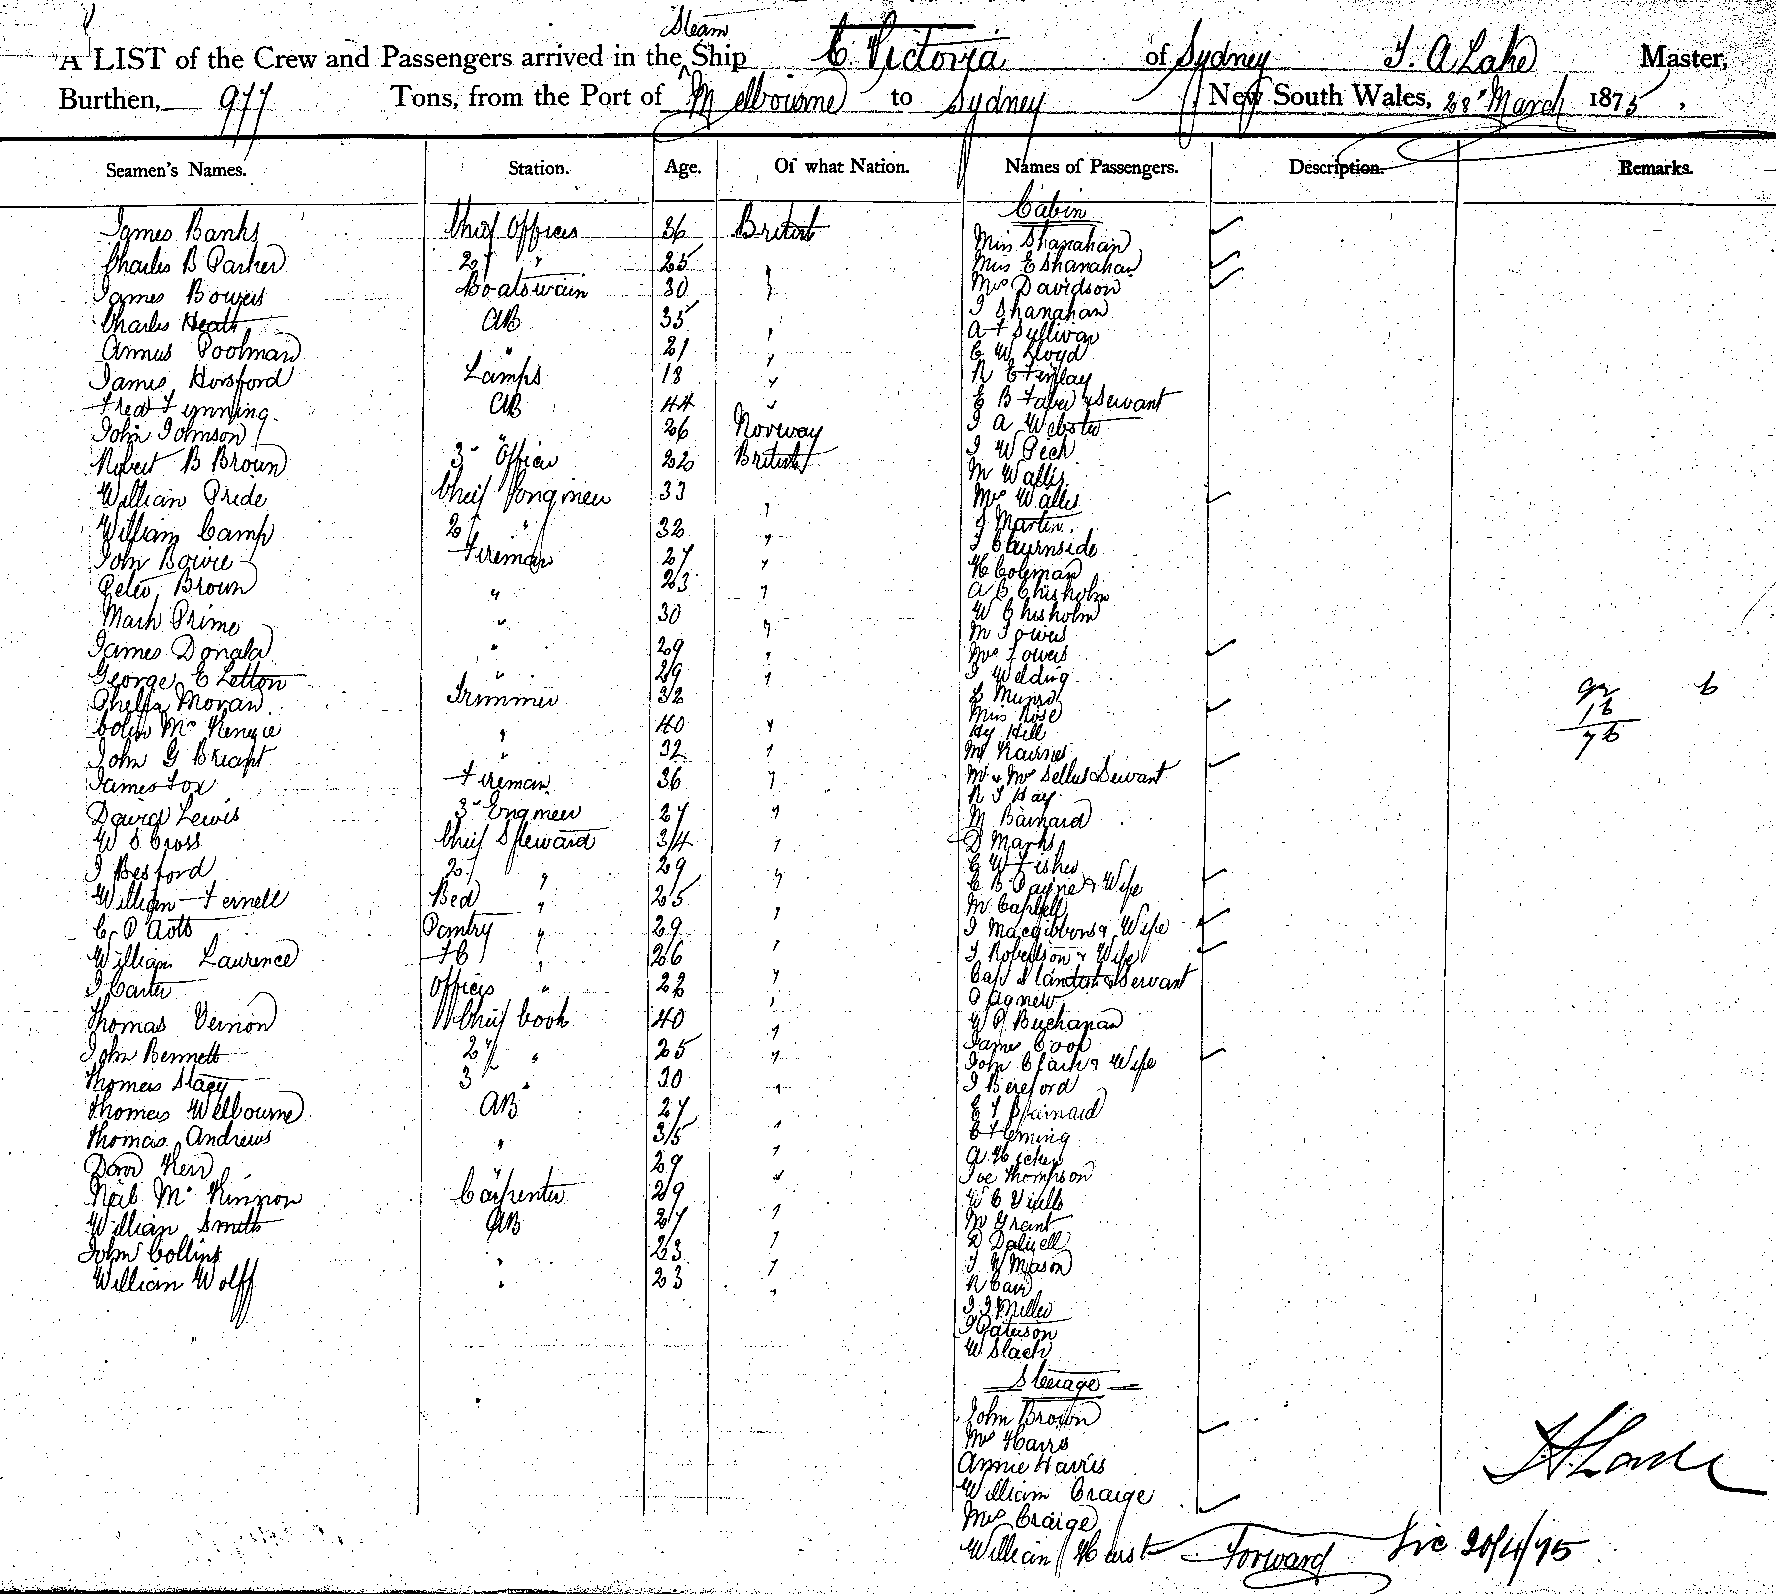 Steam
A LIST of the Crew and Passengers arrived in the Ship C. Victoria of Sydney J. A Lake Master,
Burthen, 977 Tons, from the Port of Melbourne to Sydney New South Wales, 28" March 1875,
Seamen's Names. Station. Age. Of what Nation. Names of Passengers. Description. Remarks.
Cabin
James Banks Chief Officer 36 British
Charles B Parker 2d " 25 "
James Bowers Boatswain 30 "
Charles Heath AB 35 "
Poolman " 21 "
James Horsford Lamps 18 "
AB 44 "
John Johnson 26 Norway
Robert B Brown 3d Officer 22 British
William Pride Chief Engineer 33 "
William Camp 2d " 32 "
John Bowie Fireman 27 "
Peter Brown " 23 "
Mark Prime " 30 "
James Donald " 29 "
George E Letton " 29 "
Moran Trimmer 32
Colin Mc Kenzie " 40 "
John G Bryant " 32 "
James Fox Fireman 36 "
David Lewis 3d Engineer 27 "
W S Cross Chief Steward 34 "
J Besford 2d " 29 "
William Fernell Bed " 25 "
Pantry " 29 "
William Laurence " 26 "
J Carter Officers " 22 "
Thomas Vernon Chief Cook 40 "
John Bennett 2d " 25 "
Thomas Stacy 3 " 30 "
Thomas Welbourne AB 27 "
Thomas Andrews " 35 "
Kerr " 29 "
Neil Mc Kinnon Carpenter 29 "
William Smith AB 27 "
John Collins " 23 "
William Wolff " 23 "
Miss Shanahan
Miss E Shanahan
Mrs Davidson
J Shanahan
A F Sullivan
C W Lloyd
R E Finlay
C B Faber & Servant
J A Webster
J W Peck
M Wallis
Mrs Wallis
J Martin
J Churnside
H Coleman
A C Chisholm
W Chisholm
M Towers
Mrs Towers
J Welding
L Munro
Miss Rose
Hy Hill
M Kairns
Mr & Mrs Servant
R J Hay
M Barnard
D Marks
C W Fisher
C B Payne & Wife
M Campbell
J Macgibbons & Wife
J Robertson & Wife
Cap Standish & Servant
O Agnew
W P Buchanan
James Cook
John Clark & Wife
J Bereford
E T Barnard
C Fleming
Joe Thompson
M Grant
D Dalzell
J Y Mason
R Cair
J J Miller
J Paterson
W Slack
Steerage
John Brown
Mrs Harris
Annie Harris
William Craige
Mrs Craige
William Hurst Forward
92 6
16
76
20/4/75